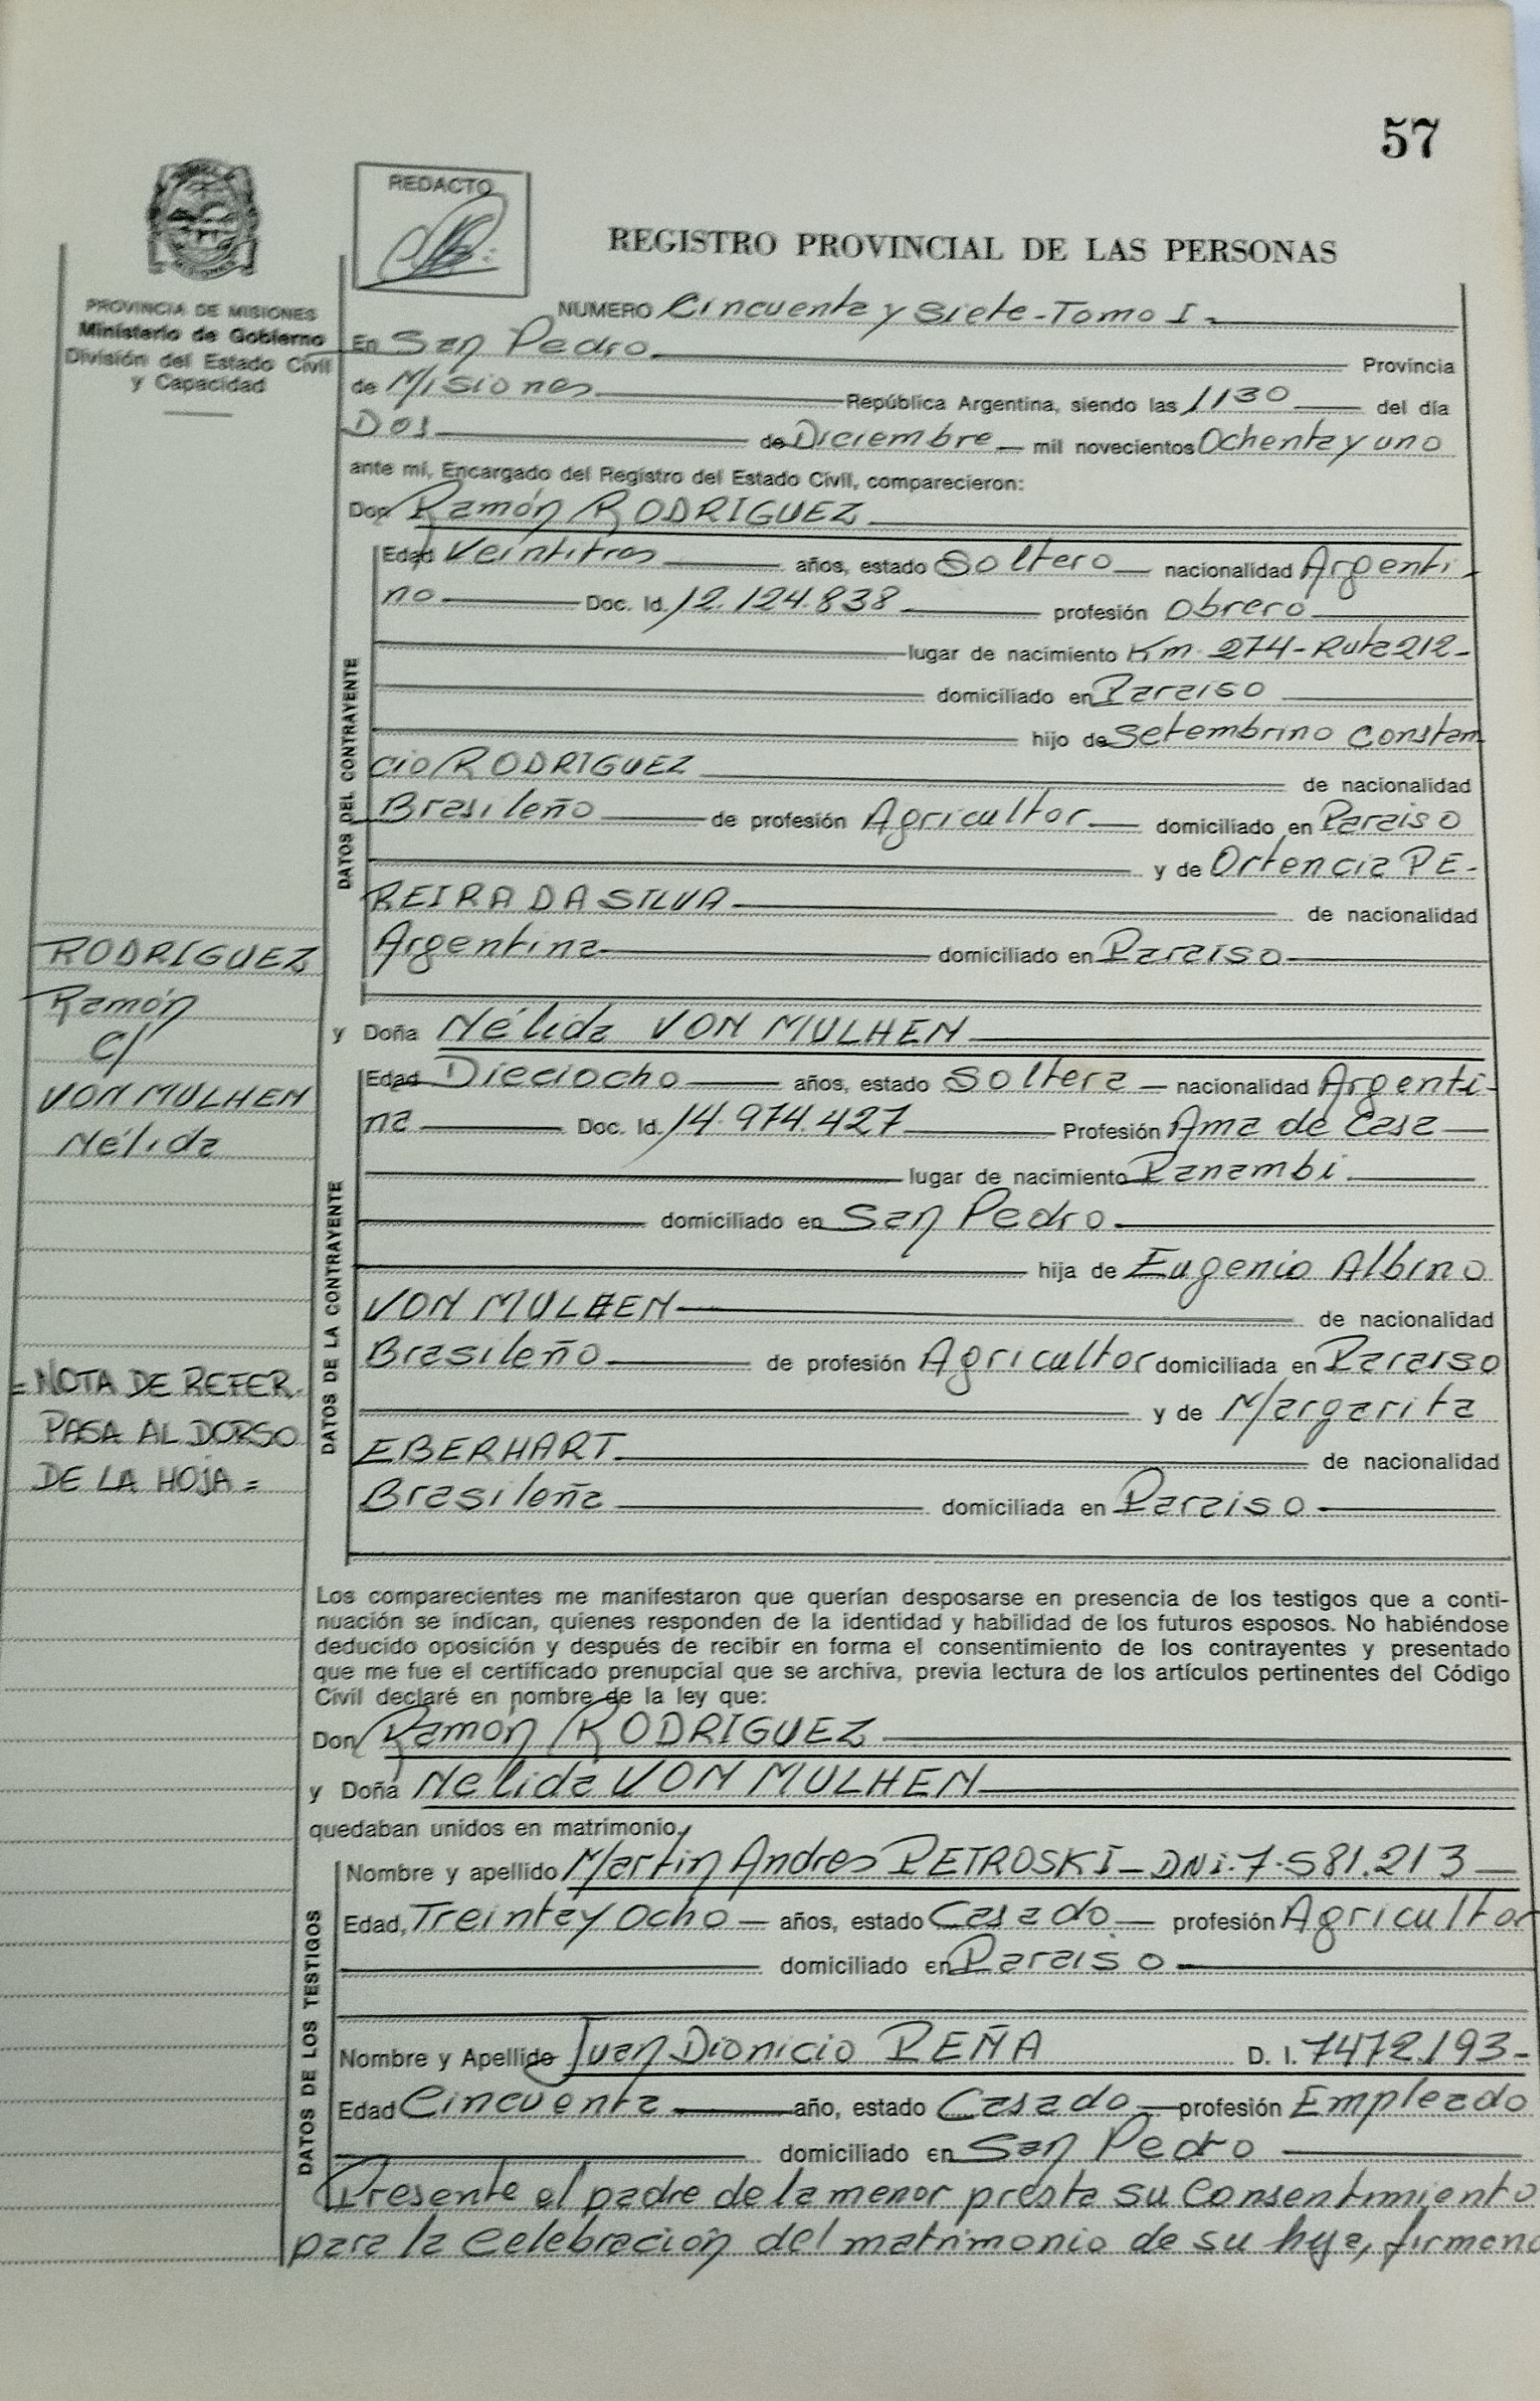 57
REDACTO
REGISTRO PROVINCIAL DE LAS PERSONAS
PROVINCIA DE MISIONES
Ministerio de Gobierno
División del Estado Civil
y Capacidad
NUMERO Cincuenta y Siete - Tomo I -
En San Pedro Provincia
de Misiones República Argentina, siendo las 1130 del día
Dos de Diciembre mil novecientos Ochenta y uno
ante mí, Encargado del Registro del Estado Civil, comparecieron:
Don Ramón RODRIGUEZ
DATOS DEL CONTRAYENTE
Edad Veintitres años, estado Soltero nacionalidad Argenti-
no Doc. Id. 12.124.838 profesión Obrero
lugar de nacimiento Km. 274 - Ruta 212 -
domiciliado en Paraiso
hijo de Setembrino Constan
cio RODRIGUEZ de nacionalidad
Brasileño de profesión Agricultor domiciliado en Paraiso
y de Ortencia PE-
REIRA DA SILVA de nacionalidad
Argentina domiciliado en Paraiso
RODRIGUEZ
Ramón
c/
VON MULHEN
Nélida
y Doña Nélida VON MULHEN
DATOS DE LA CONTRAYENTE
Edad Dieciocho años, estado Soltera nacionalidad Argenti-
na Doc. Id. 14.974.427 Profesión Ama de Casa
lugar de nacimiento Panambi
domiciliado en San Pedro
hija de Eugenio Albino
VON MULHEN de nacionalidad
Brasileño de profesión Agricultor domiciliada en Paraiso
y de Margarita
EBERHART de nacionalidad
Brasileña domiciliada en Paraiso
= NOTA DE REFER.
PASA AL DORSO
DE LA HOJA =
Los comparecientes me manifestaron que querían desposarse en presencia de los testigos que a conti-
nuación se indican, quienes responden de la identidad y habilidad de los futuros esposos. No habiéndose
deducido oposición y después de recibir en forma el consentimiento de los contrayentes y presentado
que me fue el certificado prenupcial que se archiva, previa lectura de los artículos pertinentes del Código
Civil declaré en nombre de la ley que:
Don Ramón RODRIGUEZ
y Doña Nelida VON MULHEN
quedaban unidos en matrimonio.
DATOS DE LOS TESTIGOS
Nombre y apellido Martin Andres PETROSKI - DNi. 7.581.213
Edad, Treinta y Ocho años, estado Casado profesión Agricultor
domiciliado en Paraiso
Nombre y Apellido Juan Dionicio PEÑA D. I. 7472193-
Edad Cincuenta año, estado Casado profesión Empleado
domiciliado en San Pedro
Presente el padre de la menor presta su Consentimiento
para la Celebración del matrimonio de su hija, firmand